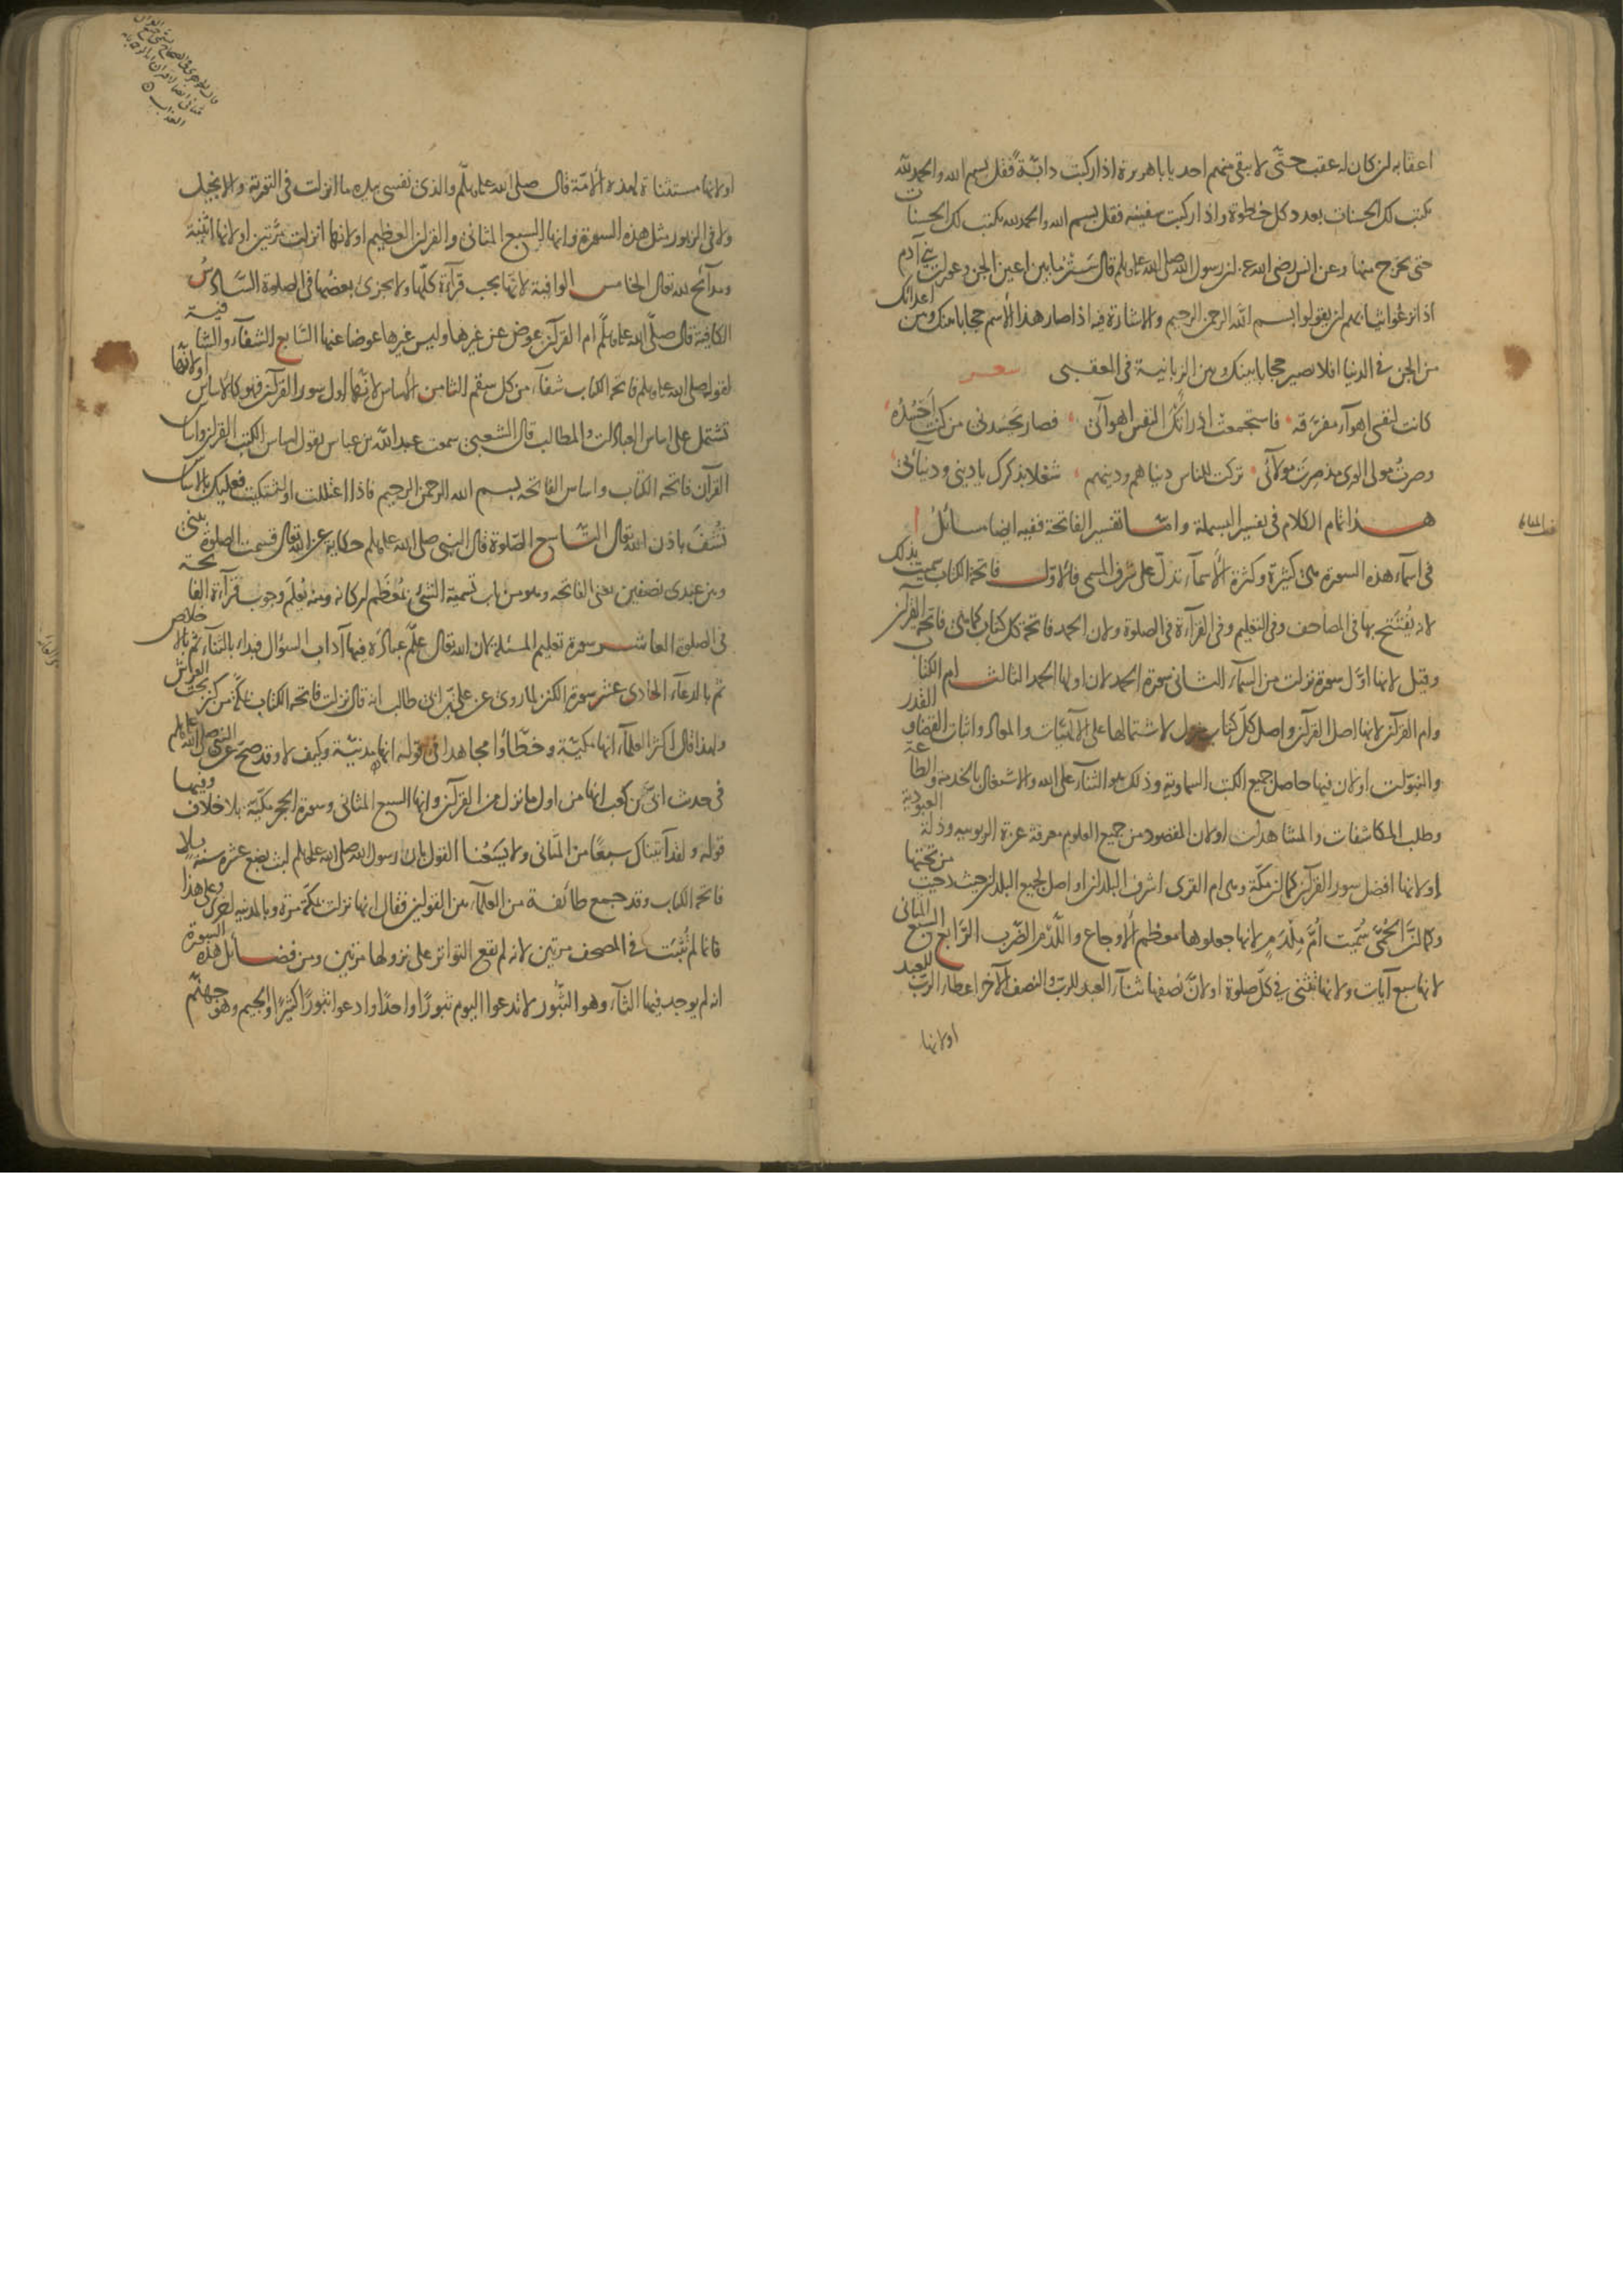 اعقابه لن كان له عقب حتّى لا يبقى منهم احد يا باهريرة اذا ركبت دابّةً فقل بسم الله والحمد لله
يكتب لك الحسنات بعدد كل خطوة واذا ركبت سفينة فقل بسم الله والحمد لله يكتب لك الحسنات
حتى تخرج منها وعن انس رضى الله عنه لن رسول الله صلى الله عليه وسلم قال ستر ما بين اعين الجن وعورات بنى آدم
اذا نزعوا ثيابهم لن يقولوا بسم الله الرحمن الرحيم والاشارة فيه اذا صار هذا الاسم حجابا بينك وبين اعدائك
من الجن فى الدنيا افلا يصير حجابا بينك وبين الزبانية فى العقبى شعر
كانت لنفسى اهوآء مفرّقة فاستجمعت اذ رأتك النفس اهوآئى فصار يحسدنى من كنت احسُدُه
وصرتُ مولى الورى مذ صرتَ مولائى تركت للناس دنياهم ودينهم شغلا بذكرك يا دينى ودنيائى
هذا تمام الكلام فى تفسير البسملة وامّا تفسير الفاتحة ففيه ايضا مسائل ا
فى اسمآء هذه السورة هى كثيرة وكثرة الأسمآء تدلّ على شرف المسمى فالاوّل فاتحة الكتاب سميت بذلك
لانه يُفتتح بها فى المصاحف وفى التعليم وفى القرآءة فى الصلوة ولان الحمد فاتحة كل كتاب كما هى فاتحة القرآن
وقيل لانها اوّل سورة نزلت من السمآء الثانى سورة الحمد لان اولها الحمد الثالث ام الكتاب
وام القرآن لانها اصل القرآن واصل كلّ كتاب منزل لاشتمالها على الآلهيّات والمعاد واثبات القضاء والقدر
والنبوّات اولان فيها حاصل جميع الكتب السماوية وذلك هو الثنآء على الله والاشتغال بالخدمة والطاعة
وطلب المكاشفات والمشاهدات اولان المقصود من جميع العلوم معرفة عزة الربوبيه وذلة العبودية
اولانها افضل سور القرآن كما لن مكّة وهى ام القرى اشرف البلدان او اصل لجميع البلدان حيث دحيت من تحتها
وكما لنّ الحُمَّى سُمّيت امُّ مِلْدَمٍ لانها جعلوها معظم الأوجاع واللّدم الضرب الرّابع السبع المثانى
لانها سبع آيات ولانها تثنى فى كلّ صلوة اولانّ نصفها ثنآء العبد للرب والنصف الآخر اعطاء الربّ للعبد
اولانها
اولانها مستثناة لهذه الأمّة قال صلى الله عليه وسلّم والذى نفسى بيده ما انزلت فى التورية والانجيل
ولا فى الزبور مثل هذه السورة وانها السبع المثانى والقرآن العظيم اولانها انزلت مرّتين اولانها اثنية
ومدآئح لله تعال الخامس الوافية لانها يجب قرآءة كلّها ولا يجزى بعضها فى الصلوة السّادسُ
الكافية قال صلّى الله عليه وسلّم ام القرآن عوض عن غيرها وليس غيرها عوضا عنها السّابع الشفآء والشّافية
لقوله صلى الله عليه وسلم فاتحة الكتاب شفآء من كل سقم الثامن الأساس لانّها اول سور القرآن فهو كالاساس اولانّها
تشتمل على اساس العبادات والمطالب قال الشعبى سمعت عبد الله بن عباس يقول اساس الكتب القرآن واساس
القرآن فاتحة الكتاب واساس الفاتحة بسم الله الرحمن الرحيم فاذا اعتللت او اشتكيت فعليك بالاساس
تُشفَ باذن الله تعالى التّاسع الصّلوة قال النبى صلى الله عليه وسلم حكاية عن الله تعالى قسمت الصلوة بينى
وبين عبدى نصفين يعنى الفاتحه وهو من باب تسمية الشئ بمُعظَم اركانه ومنه يُعلَم وجوب قرآءة الفاتحة
فى الصلوة العاشر سورة تعليم المسئلة لان الله تعالى علّم عباده فيها آداب السؤال فبدأ بالثنآء ثم بالاخلاص
ثم بالدعآء الحادى عشر سورة الكنز لما روى عن على بن ابى طالب انه قال نزلت فاتحة الكتاب بمكّة من كنز تحت العرش
ولهذا قال اكثر العلمآء انها مكيّة وخطّأوا مجاهدا فى قوله انها مدنيّة وكيف لا وقد صحّ عن النبى صلى الله عليه وسلم
فى حديث ابىّ بن كعب انها من اول ما نزل من القرآن وانها السبع المثانى وسورة الحجر مكيّة بلا خلاف وفيها
قوله ولقد آتيناك سبعًا من المثانى ولا يسَعُنا القول بان رسول الله صلى الله عليه وسلم لبث بضع عشرة سنة بلا
فاتحة الكتاب وقد جمع طآئفة من العلمآء بين القولين فقال انها نزلت بمكّة مرة وبالمدينه اخرى وعلى هذا
فانما لم تُثبت فى المصحف مرتين لانه لم يقع التواتر على نزولها مرتين ومن فضائل هذه السورة
انه لم يوجد فيها الثآء وهو الثبُور لا تدعوا اليوم ثبورًا واحدًا وادعوا ثبورًا كثيرًا والجيم وهو جهنّم